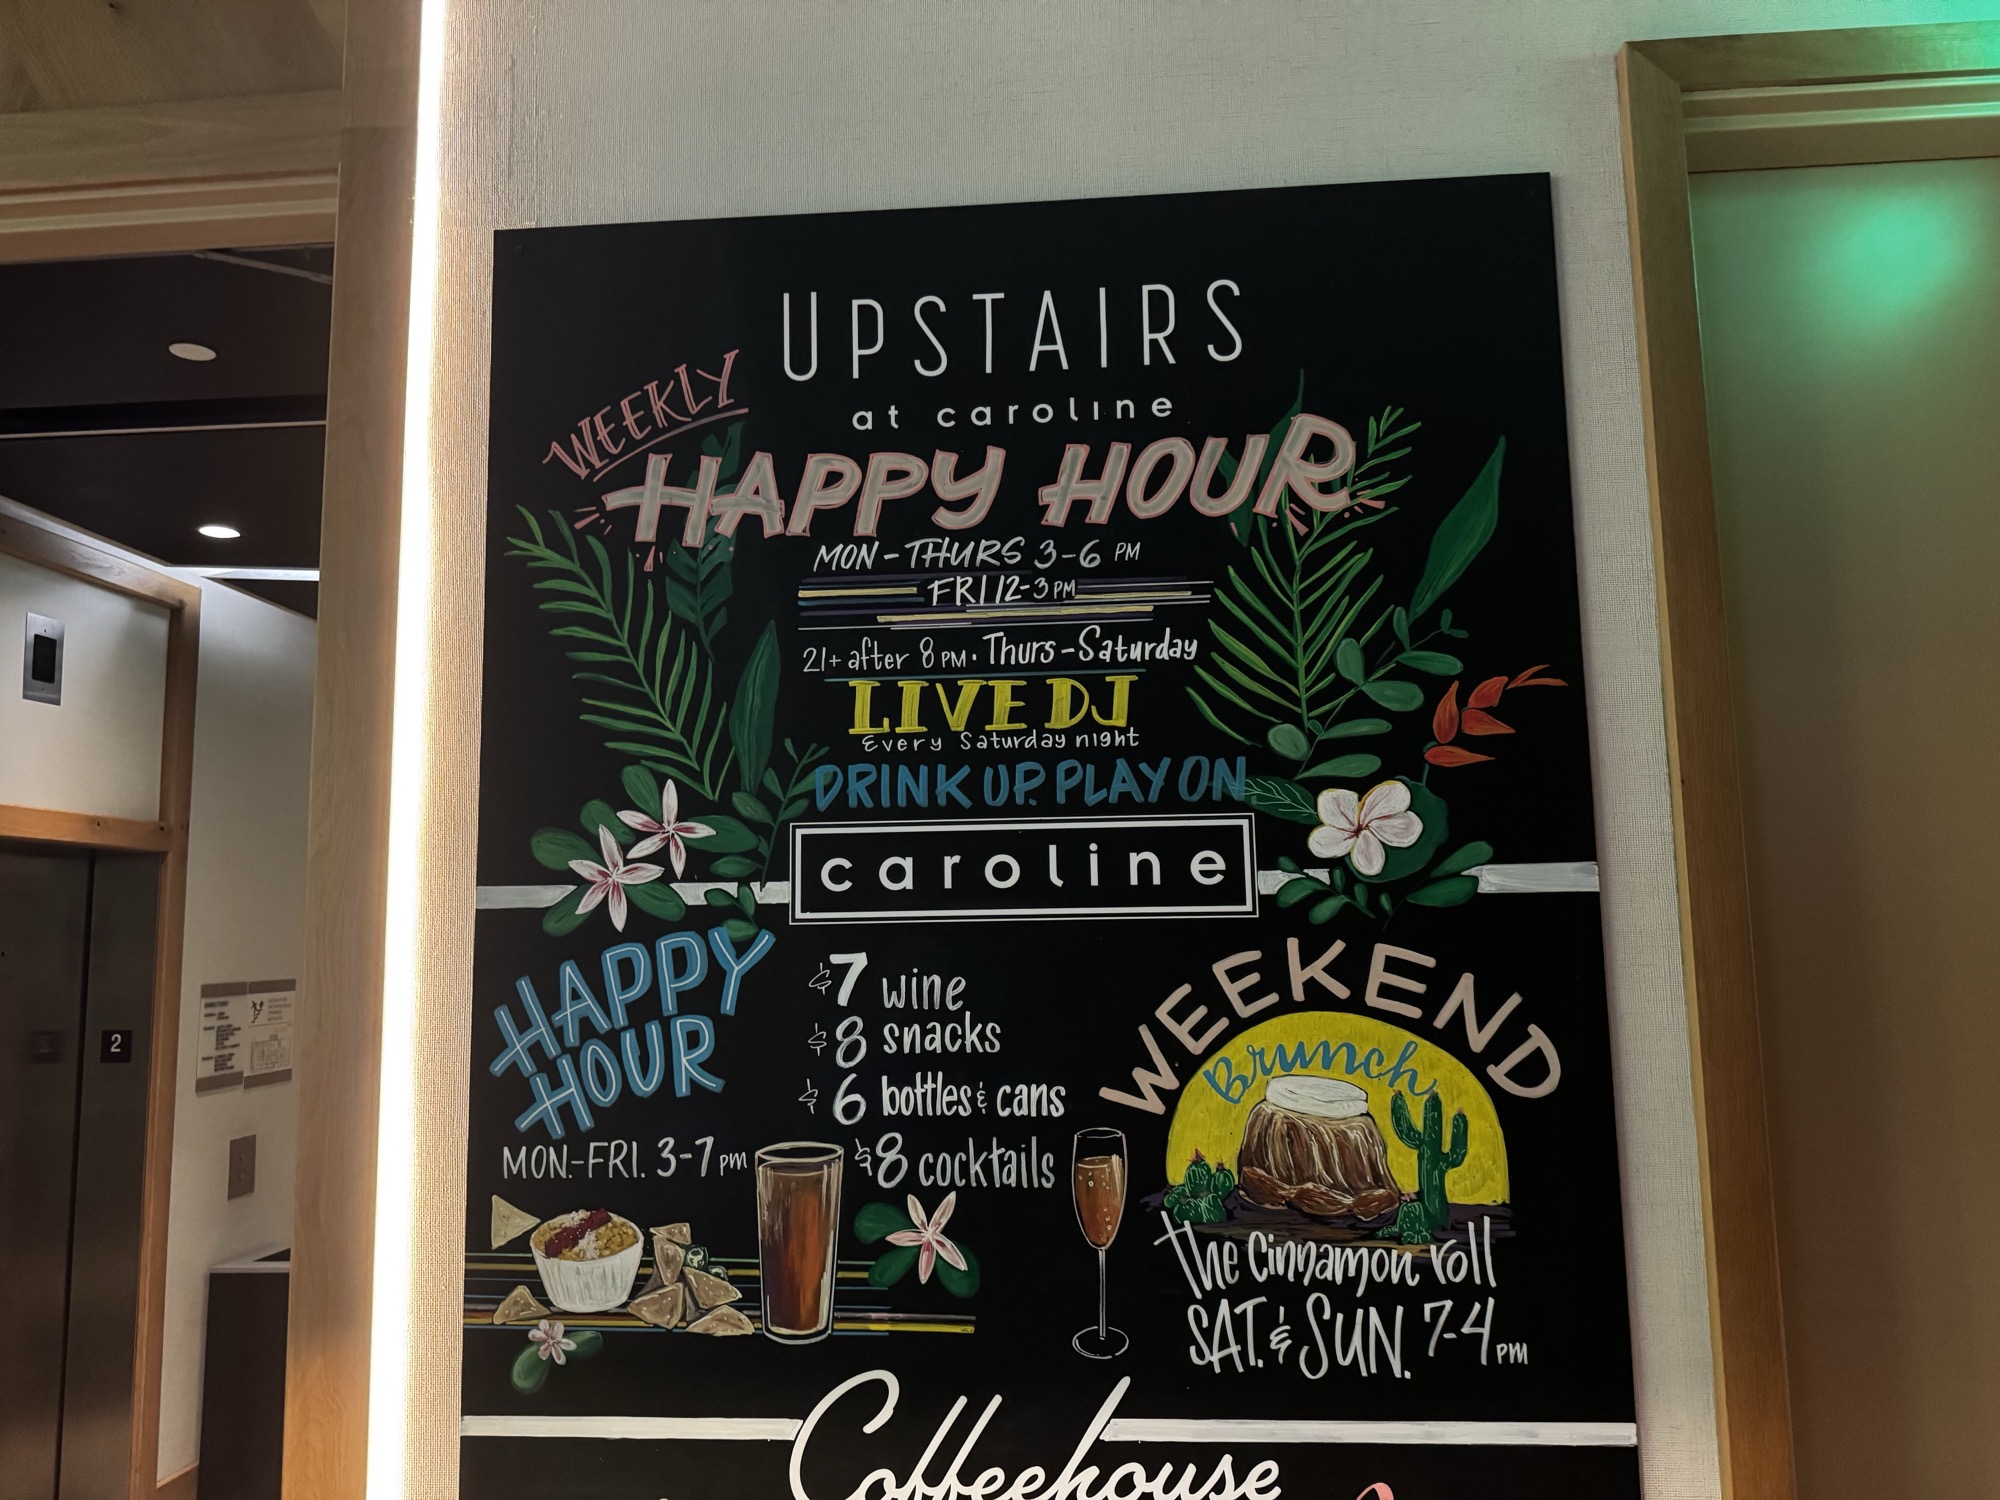 UPSTAIRS
at caroline
WEEKLY
HAPPY HOUR
MON-THURS 3-6 PM
FRI 12-3 PM
21+ after 8 PM. Thurs-Saturday
LIVE DJ
Every Saturday night
DRINK UP. PLAY ON.
caroline
HAPPY
HOUR
MON.-FRI. 3-7 PM
$7 wine
$8 snacks
$6 bottles & cans
$8 cocktails
WEEKEND
Brunch
the Cinnamon roll
SAT. & SUN. 7-4 PM
Coffeehouse
2